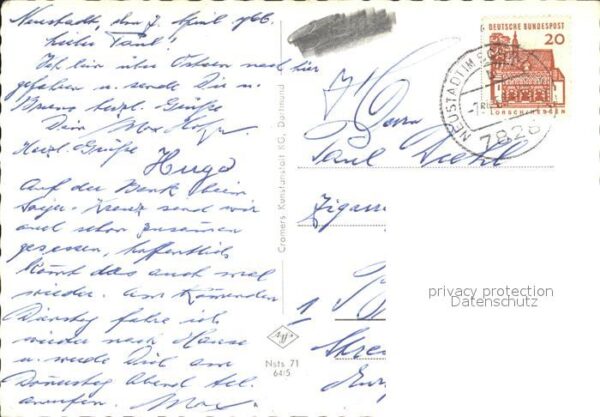 Neustadt, den 7. April 1966.
Lieber Paul!
Ich bin über Ostern nach hier
gefahren u. sende Dir u.
herzl. Grüße
Dein Max
Herzl. Grüße
Hugo
Auf der Bank beim
Kreuz sind wir
auch schon zusammen
gesessen, hoffentlich
kommt das auch mal
wieder. Am kommenden
Dienstag fahre ich
wieder nach Hause
u. werde Dich am
Donnerstag Abend tel.
anrufen. Max
Cramers Kunstanstalt KG, Dortmund
Agfa
Nsts 71
64/5
DEUTSCHE BUNDESPOST
20
LORSCH/HESSEN
NEUSTADT IM SCHW
7828
Herrn
Paul Diehl
Zigarr
1
privacy protection
Datenschutz